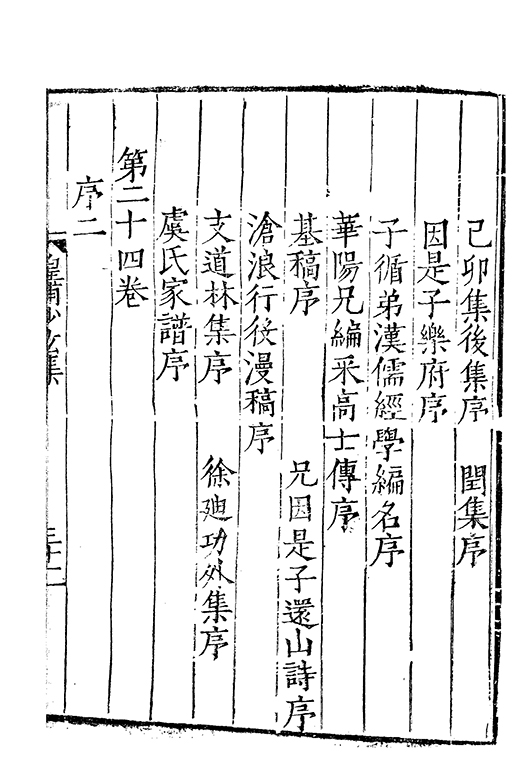 己卯集後集序　閏集序
因是子樂府序
子循弟漢儒經學編名序
華陽兄編采高士傳序
基稿序　兄因是子還山詩序
滄浪行後漫稿序
支道林集序　徐廸功外集序
虞氏家譜序
第二十四卷
序二